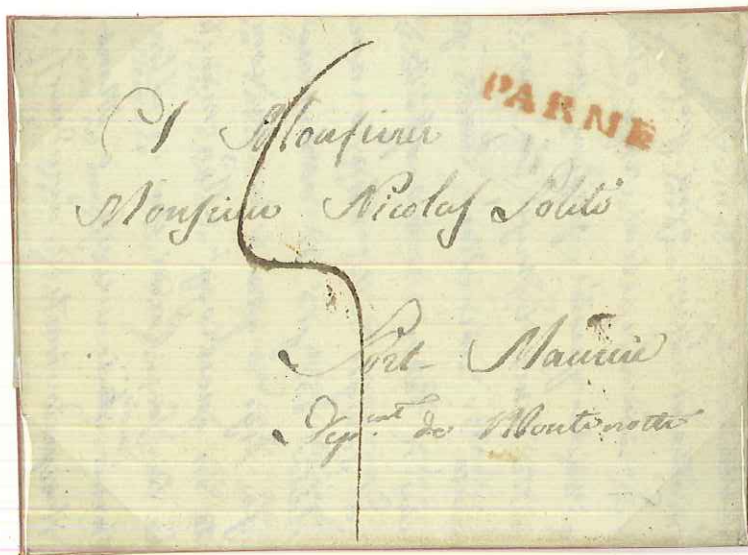 PARME
A Monsieur
Monsieur Nicolas
Port-Maurice
Dep.ent de Montenotte
5